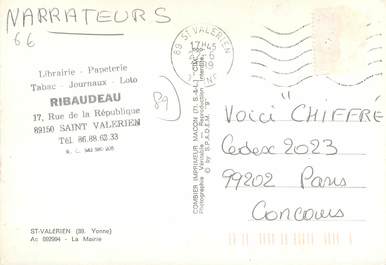 NARRATEURS
66
89 ST-VALERIEN
17H45
Librairie - Papeterie
Tabac - Journaux - Loto
RIBAUDEAU
17, Rue de la République
89150 SAINT VALERIEN
Tél. 86.88.62.33
89
COMBIER IMPRIMEUR MACON
Photographie Véritable - Reproduction Interdite
© by S.P.A.D.E.M.
Voici "CHIFFRÉ"
Cedex 2023
99202 Paris
Concours
ST-VALERIEN (89. Yonne)
Ac 992994 - La Mairie